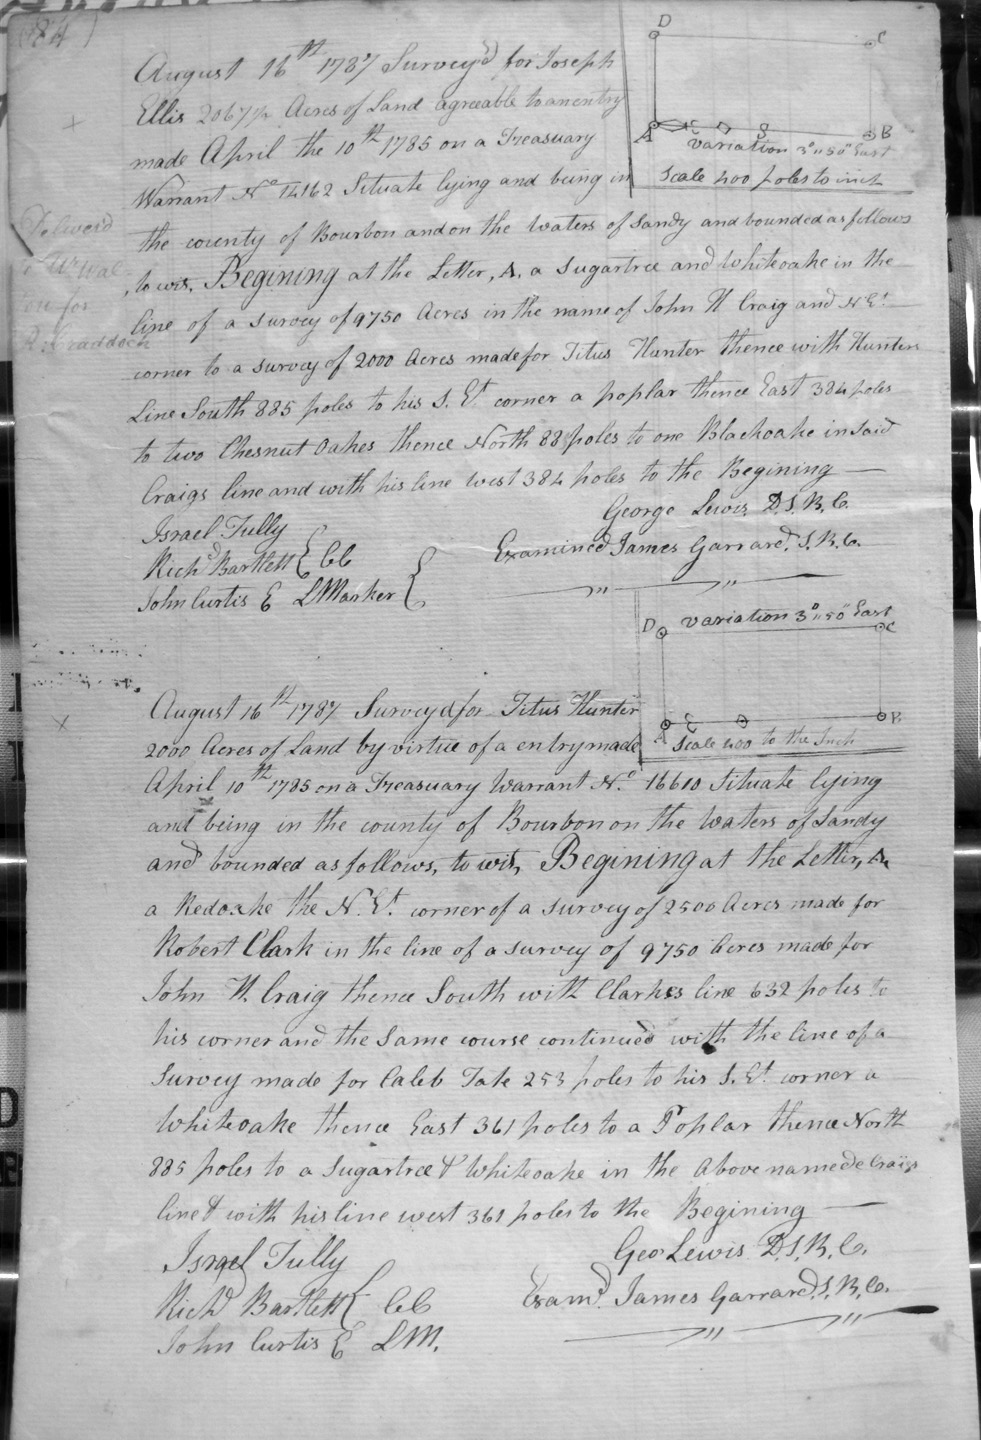 (84)
August 16th 1787 Survey'd for Joseph
Ellis 2067½ Acres of Land agreeable to an entry
made April the 10th 1785 on a Treasuary
Warrant No 14162 Situate lying and being in
the county of Bourbon and on the waters of Sandy and bounded as follows
, to wit, Begining at the Letter, A, a Sugartree and Whiteoake in the
line of a survey of 9750 Acres in the name of John H Craig and N Et
corner to a survey of 2000 Acres made for Titus Hunter thence with Hunters
Line South 885 poles to his S. Et corner a poplar thence East 384 poles
to two Chesnut Oakes thence North 885 poles to one Blackoake in Said
Craigs line and with his line west 384 poles to the Begining
George Lewis D.S.B.C.
Israel Tully
Richd Bartlett } CC
John Curtis } LMarker
Examined James Garrard. S.B.C.
D
C
A
B
variation 3°„50" East
Scale 400 poles to inch
Deliverd
for
R. Craddock
D variation 3°„50" East C
A
B
Scale 400 to the Inch
August 16th 1787 Surveyd for Titus Hunter
2000 Acres of Land by virtue of a entry made
April 10th 1785 on a Treasuary Warrant No. 16610 Situate lying
and being in the county of Bourbon on the waters of Sandy
and bounded as follows, to wit, Begining at the Letter, A,
a Redoake the N. Et. corner of a survey of 2500 Acres made for
Robert Clark in the line of a survey of 9750 Acres made for
John H. Craig thence South with Clarkes line 632 poles to
his corner and the Same course continued with the line of a
Survey made for Caleb Tate 253 poles to his S. Et. corner a
Whiteoake thence East 361 poles to a Poplar thence North
885 poles to a Sugartree & Whiteoake in the Above namede Craigs
line & with his line west 361 poles to the Begining
Geo Lewis D.S.B.C.
Israel Tully
Richd Bartlett } CC
John Curtis } LM.
Examd. James Garrard. S.B.Co.